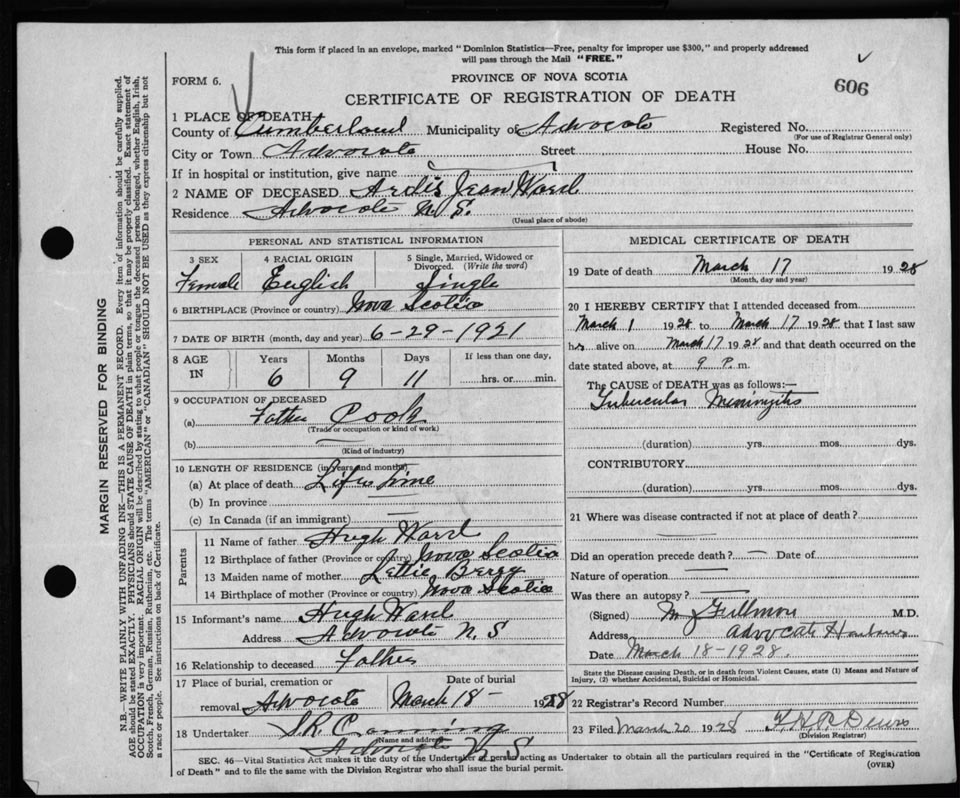 This form if placed in an envelope, marked "Dominion Statistics—Free, penalty for improper use $300," and properly addressed
will pass through the Mail "FREE."
FORM 6.
PROVINCE OF NOVA SCOTIA
606
CERTIFICATE OF REGISTRATION OF DEATH
1 PLACE OF DEATH
County of Cumberland Municipality of Advocate Registered No.
(For use of Registrar General only)
City or Town Advocate Street House No.
If in hospital or institution, give name
2 NAME OF DECEASED Ardis Jean Ward
Residence Advocate N.S.
(Usual place of abode)
PERSONAL AND STATISTICAL INFORMATION
3 SEX 4 RACIAL ORIGIN 5 Single, Married, Widowed or
Divorced. (Write the word)
Female English Single
6 BIRTHPLACE (Province or country) Nova Scotia
7 DATE OF BIRTH (month, day and year) 6-29-1921
8 AGE IN Years Months Days If less than one day,
6 9 11 hrs. or min.
9 OCCUPATION OF DECEASED
(a) Father Cook
(Trade or occupation or kind of work)
(b)
(Kind of industry)
10 LENGTH OF RESIDENCE (in years and months)
(a) At place of death Life time
(b) In province
(c) In Canada (if an immigrant)
Parents
11 Name of father Hugh Ward
12 Birthplace of father (Province or country) Nova Scotia
13 Maiden name of mother Lettie Berry
14 Birthplace of mother (Province or country) Nova Scotia
15 Informant's name Hugh Ward
Address Advocate N.S
16 Relationship to deceased Father
17 Place of burial, cremation or Date of burial
removal Advocate March 18- 1928
18 Undertaker S.R. Canning
(Name and address)
Advocate N.S
MEDICAL CERTIFICATE OF DEATH
19 Date of death March 17 1928
(Month, day and year)
20 I HEREBY CERTIFY that I attended deceased from
March 1 1928 to March 17 1928 that I last saw
h alive on March 17 1928 and that death occurred on the
date stated above, at 9 P. m.
The CAUSE of DEATH was as follows:—
Tubercular Meningitis
(duration) yrs. mos. dys.
CONTRIBUTORY
(duration) yrs. mos. dys.
21 Where was disease contracted if not at place of death?
Did an operation precede death? — Date of
Nature of operation —
Was there an autopsy?
(Signed) M Fillmore M.D.
Address Advocate Harbour
Date March 18-1928.
State the Disease causing Death, or in death from Violent Causes, state (1) Means and Nature of
Injury, (2) whether Accidental, Suicidal or Homicidal.
22 Registrar's Record Number
23 Filed March 20 1928
(Division Registrar)
SEC. 46—Vital Statistics Act makes it the duty of the Undertaker or person acting as Undertaker to obtain all the particulars required in the "Certificate of Registration
of Death" and to file the same with the Division Registrar who shall issue the burial permit.
(OVER)
MARGIN RESERVED FOR BINDING
N.B.—WRITE PLAINLY WITH UNFADING INK—THIS IS A PERMANENT RECORD. Every item of information should be carefully supplied.
AGE should be stated EXACTLY. PHYSICIANS should STATE CAUSE OF DEATH in plain terms, so that it may be properly classified. Exact statement of
OCCUPATION is very important. RACIAL ORIGIN will be described by stating to what people or tongue the deceased person belonged, whether English, Irish,
Scotch, French, German, Russian, Ruthenian, etc. The terms "AMERICAN" or "CANADIAN" SHOULD NOT BE USED as they express citizenship but not
a race or people. See instructions on back of Certificate.